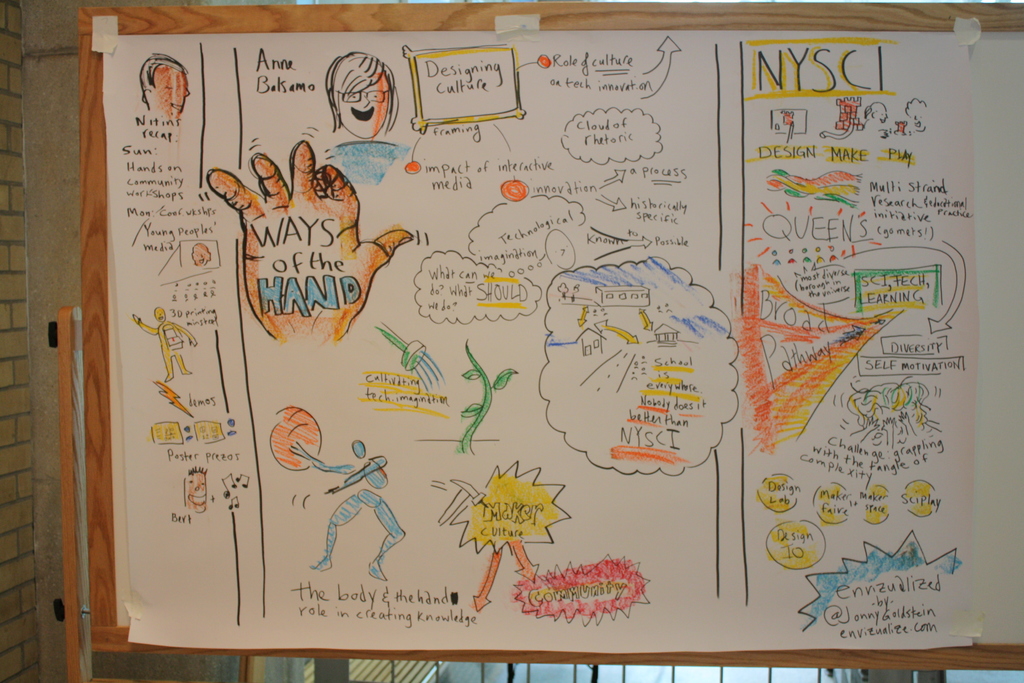 Nitin's
recap
Sun:
Hands on
community
workshops
Young Peoples'
media
3D printing
minstrel
demos
Poster prezos
Bert
Anne
Balsamo
Designing
Culture
framing
Role of culture
on tech innovation
Cloud of
rhetoric
impact of interactive
media
innovation
a process
historically
specific
Technological
imagination
?
Known to Possible
What can we
do? What
SHOULD
we do?
WAYS
of the
HAND
Cultivating
tech.imagination
School
is
everywhere
Nobody does it
better than
NYSCI
Maker
culture
community
the body & the hand
role in creating knowledge
NYSCI
DESIGN MAKE PLAY
Multi Strand
research & educational
initiative practice
QUEENS
(go mets!)
most diverse
borough in
the universe
SCI, TECH,
LEARNING
Broad
Pathway
DIVERSITY
SELF MOTIVATION
Challenge: grappling
with the tangle of
complexity
Design
Lab
Maker
Faire
Maker
space
Sciplay
Design
IO
envizualized
-by-
@JonnyGoldstein
envizualize.com